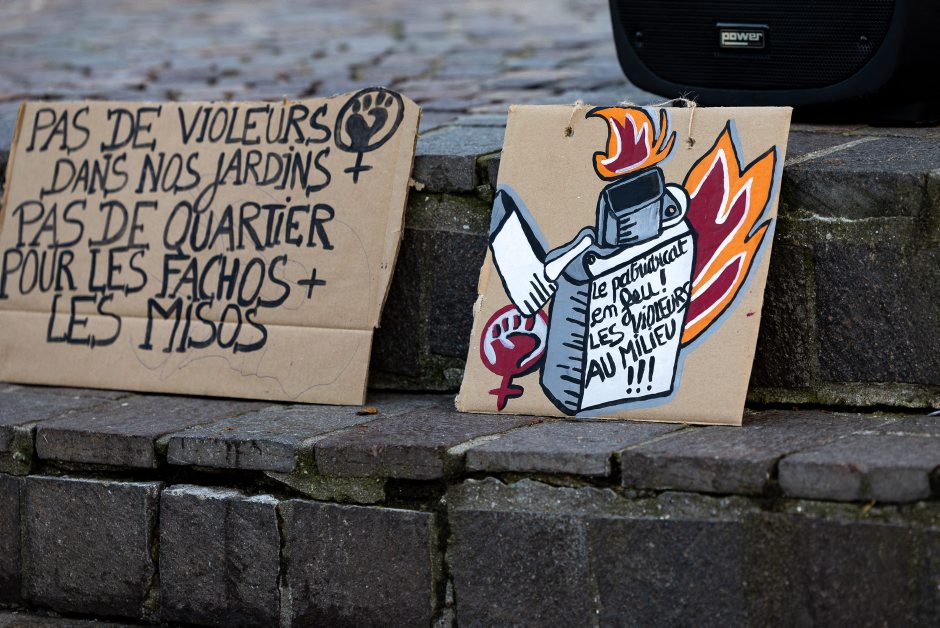 power
PAS DE VIOLEURS
DANS NOS JARDINS
PAS DE QUARTIER
POUR LES FACHOS +
LES MISOS
Le patriarcat
en feu !
LES VIOLEURS
AU MILIEU
!!!